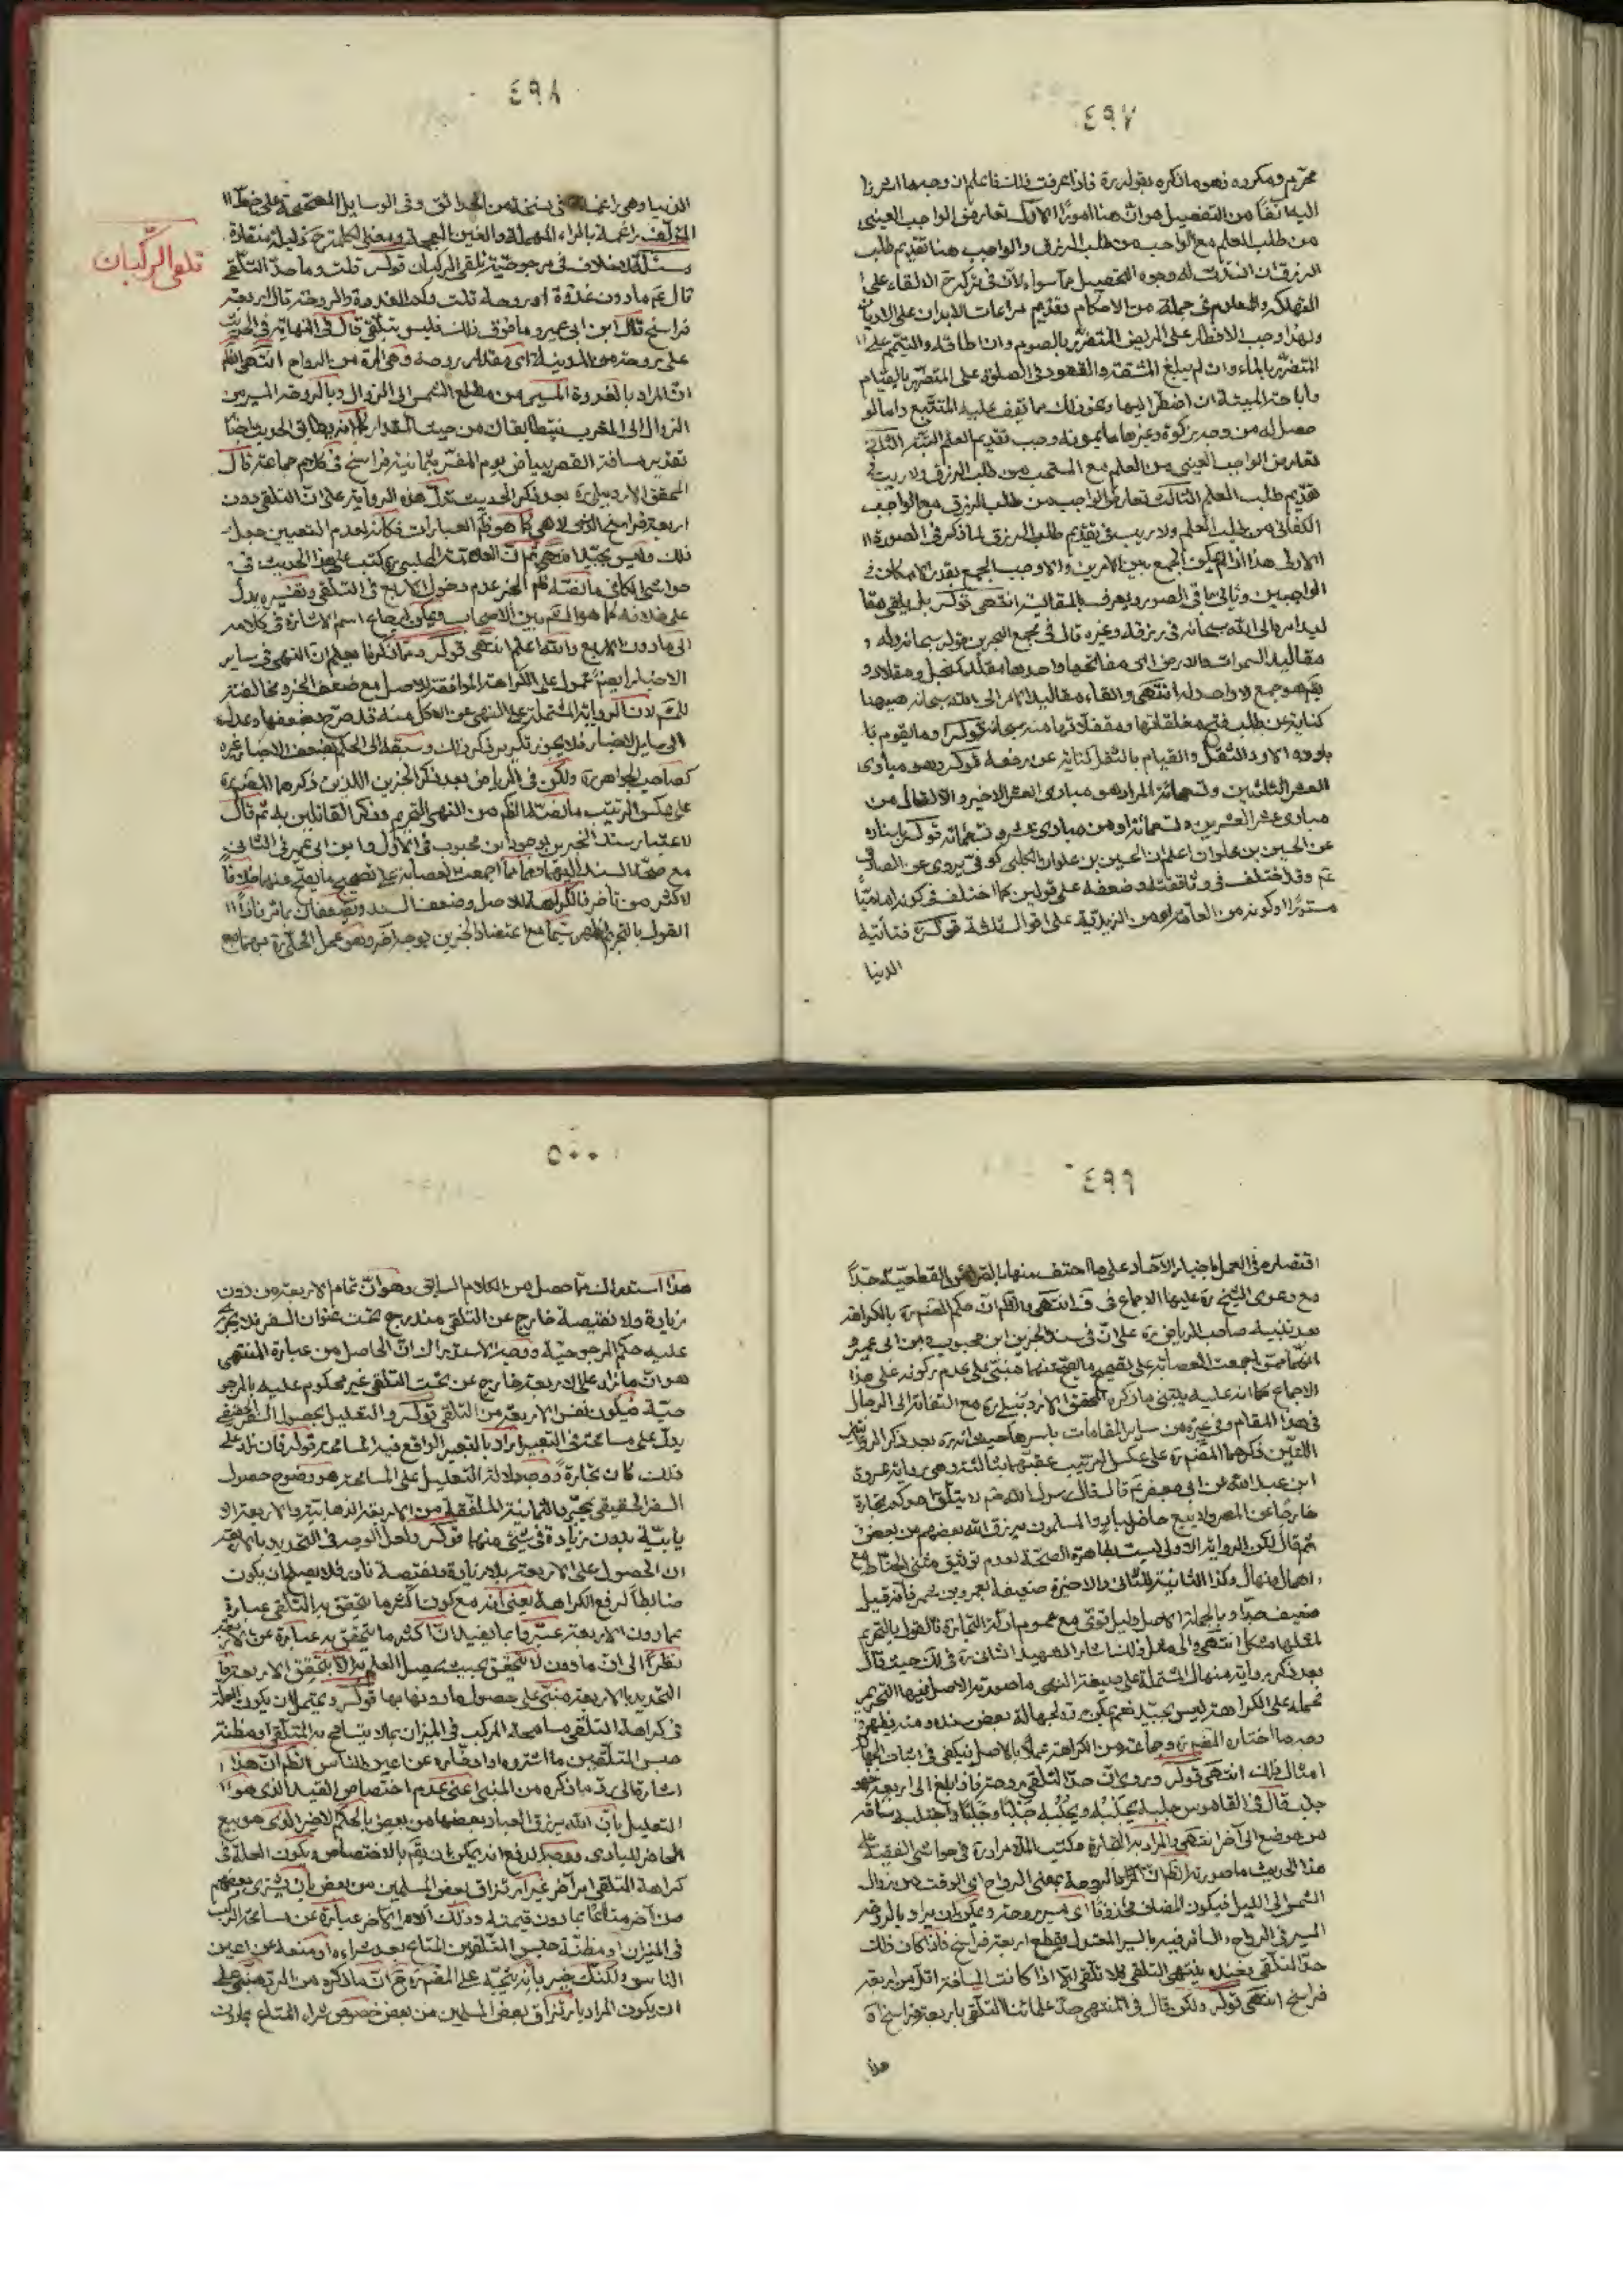 ٤٩٧
محرّم ومكروه فهو ما ذكره بقوله ره فاذا عرفت ذلك فاعلم ان وجه ما اشرنا
اليه آنفاً من التفصيل هو انّ هنا امورًا الاوّل تعارض الواجب العيني
من طلب العلم مع الواجب من طلب الرزق والواجب هنا تقديم طلب
الرزق
التهلكة والمعلوم من جملة من الاحكام تقديم مراعات الابدان على الاديان
ولهذا وجب الافطار على المريض المتضرّر بالصوم وان اطاقه والتيمّم على
المتضرّر بالماء وان لم يبلغ المشقة والقعود في الصلوة على المتضرّر بالقيام
واباحة الميتة ان اضطرّ اليها ونحو ذلك مما يقف عليه المتتبّع واما لو
حصل له من وجه زكوة وغيرها ما يمونه وجب تقديم العلم الثاني
تعارض الواجب العيني من العلم مع المستحب من طلب الرزق ولا ريب في
تقديم طلب العلم الثالث تعارض الواجب من طلب الرزق مع الواجب
الكفائي من طلب العلم ولا ريب في تقديم طلب الرزق لما ذكر في الصورة
الاولى هذا اذا لم يمكن الجمع بين الامرين والا وجب الجمع بقدر الامكان في
الواجبين وباقي الصور يعرف بالمقايسة انتهى قوله بل يلقى مقا
ليد امره الى الله سبحانه في رزقه وغيره قال في مجمع البحرين قوله سبحانه وله
مقاليد السموات والارض اى مفاتيحها واحدها مقلد كمنجل ومقلاد و
يقال هو جمع لا واحد له انتهى والقاء مقاليد الامر الى الله سبحانه هيهنا
كناية عن طلب فتح مغلقاتها ومقفلاتها منه سبحانه قوله وما يقوم با
وده الاود الثقل والقيام بالثقل كناية عن رفعه قوله وهو مبادى
العشر الثلثين وتسعمائة المراد هو مبادى العشر الاخير والا
مبادى عشر العشرين وتسعمائة او من مبادى عشر وتسعمائة قوله باسناده
عن الحسين بن علوان اعلم ان الحسين بن علوان الكلبي كوفيّ يروى عن الصادق
عم وقد اختلف في وثاقته وضعفه على قولين كما اختلف في كونه اماميّاً
مستورًا او كونه من العامة او من الزيدية على اقوال ثلثة قوله ره فتأتيه
الدنيا
٤٩٨
تلقى الركبان
الدنيا وهى راغمة في نسخة من الحدائق وفي الوسايل المصحّحة على خطّ
المؤلّف راغمة بالراء المهملة والغين المعجمة ومعنى الكلمة ح ذليلة منقادة
مسئلة لا خلاف في مرجوحية تلقى الركبان قوله قلت وما حدّ التلقّى
قال عم مادون غدوة او روحة قلت وكم الغدوة والروحة قال اربعة
فراسخ قال ابن ابى عمير وما فوق ذلك فليس بتلقّى قال في النهاية في الحديث
على روحة من المدينة اى مقدار روحة وهى المرة من الرواح انتهى
انّ المراد بالغدوة المسير من مطلع الشمس الى الزوال وبالروحة المسير من
الزوال الى المغرب فيتطابقان من حيث المقدار كما انه يطابق الحديث ايضاً
تقدير مسافة القصر ببياض يوم المفسّر بثمانية فراسخ في كلام جماعة قال
المحقق الاردبيلى ره بعد ذكر الحديث تدلّ هذه الرواية على انّ التلقى دون
اربعة فراسخ
ذلك وليس بجيّد انتهى ثم انّ العلامة المجلسى ره كتب على هذا الحديث في
حواشى الكافى ما نصّه ظاهر الخبر عدم دخول الاربع في التلقى وتفسيره يدلّ
على خلافه كما هو المشهور بين الاصحاب ويمكن ارجاع اسم الاشارة في كلامه
الى مادون الاربع والله اعلم انتهى قوله وممّا ذكرنا يعلم انّ النهى في ساير
الاخبار ايضاً محمول على الكراهة الموافقة للاصل مع ضعف الخبر ومخالفته
للمشهور لانّ الرواية المشتملة على النهى عن الاكل منه قد صرّح بضعفها
الى ساير الاخبار
كصاحب الجواهر ره ولكن في الرياض بعد ذكر الخبرين اللذين ذكرهما المصنف ره
على عكس الترتيب ما نصّه الظاهر من النهى التحريم وذكر القائلين به ثم قال
لاعتبار سند الخبرين بوجود ابن محبوب في الاوّل وابن ابى عمير في الثانى
مع صحّة السند اليهما وهما ممّا اجمعت العصابة على تصحيح ما يصحّ عنهما خلافاً
لاكثر من تأخّر فالكراهة للاصل وضعف السند ويضعفان بما مرّ فاذاً
القول بالتحريم اظهر سيّما مع اعتضاد الخبرين بوجه آخر وهو عمل الحلّى ره بهما مع
٤٩٩
اقتصاره في العمل باخبار الآحاد على ما احتف منها بالقرائن القطعيّة جدّاً
مع دعوى الشيخ ره عليها الاجماع في ف انتهى والظاهر انّ حكم المصنف ره بالكراهة
بعد تنبيه صاحب الرياض ره على انّ في سند الخبرين ابن محبوب وابن ابى عمير
انّهما ممّن اجمعت العصابة على تصحيح ما يصحّ عنهما مبنى على عدم ركونه على هذا
الاجماع كما انه عليه يبتنى ما ذكره المحقق الاردبيلى ره مع التفاته الى الرجال
في هذا المقام وفي غيره من ساير المقامات باسرها حيث انه ره بعد ذكر الروايتين
اللتين ذكرهما المصنف ره على عكس الترتيب عقبّهما بثالثة وهى رواية عروة
ابن عبد الله عن ابى جعفر عم قال قال رسول الله صم لا يتلقّ احدكم تجارة
خارجاً عن المصر ولا يبيع حاضر لباد والمسلمون يرزق الله بعضهم من بعض
ثم قال لكن الرواية الاولى ليست بظاهرة الصحّة لعدم توثيق مثنى الحنّاط مع
اهمال منهال وكذا الثانية للثانى والاخيرة ضعيفة بعمرو بن شمر فانه قيل
ضعيف جدّا وبالجملة الاصل دليل قوىّ مع عموم ادلّة التجارة فالقول بالتحريم
لمثلها مشكل انتهى والى مثل ذلك اشار الشهيد الثانى ره في لك حيث قال
بعد ذكر رواية منهال المشتملة على صيغة النهى ما صورته الاصل فيها التحريم
فحمله على الكراهة ليس بجيّد نعم يمكن ردّه لجهالة بعض سنده ومنه يظهر
وجه ما اختاره المصنف ره وجماعة من الكراهة عملاً بالاصل فيكفى في اثبات
امثال ذلك انتهى قوله وروى انّ حدّ التلقى روحة فاذا بلغ الى اربعة فهو
جلب قال في القاموس جلبه يجلبه ويجلبه جلباً وجلباً واجتلبه ساقه
من موضع الى آخر انتهى والمراد به التجارة وكتب الملا مراد ره في حواشى الفقيه على
هذا الحديث ما صورته الظاهر انّ المراد بالروحة بمعنى الرواح اى الوقت من زوال
الشمس الى الليل فيكون المضاف محذوفاً اى مسير روحة ويمكن ان يراد بالروحة
المسير في الرواح والسائر فيه بالسير المعتدل يقطع اربعة فراسخ فاذا كان ذلك
حدّ التلقّى فعنده ينتهى التلقى فلا تلقّى الا اذا كانت المسافة اقلّ من اربعة
فراسخ انتهى قوله ولكن قال في المنتهى حدّ علمائنا التلقى باربعة فراسخ
هذا
٥٠٠
هذا استدراك ممّا حصل من الكلام السابق وهو انّ تمام الاربعة من دون
زيادة ولا نقيصة خارج عن التلقى مندرج تحت عنوان السفر فلا يجرى
عليه حكم المرجوحيّة ووجه الاستدراك انّ الحاصل من عبارة المنتهى
هو انّ ما زاد على الاربعة خارج عن تحت التلقى غير محكوم عليه بالمرجو
حيّة فيكون نفس الاربعة من التلقى قوله والتعليل بحصول السفر الحقيقى
يدلّ على مسامحة في التعبير اراد بالتعبير الواقع فيه المسامحة قوله فان زاد على
ذلك كان تجارة ووجه دلالة التعليل على المسامحة هو وضوح حصول
السفر الحقيقى بمجرّد الثمانية الملفّقة من الاربعة الذهابية والاربعة الا
يابيّة بدون زيادة في شئ منهما قوله ولعل الوجه في التحديد بالاربعة
ان الحصول على الاربعة بلا زيادة ونقيصة نادر فلا يصلح ان يكون
ضابطاً لرفع الكراهة يعنى انه مع كون اكثر ما يتحقق به التلقى عبارة
عمادون الاربعة عبّر بما يفيد انّ اكثر ما يتحقق به عبارة عن الاربعة
نظرًا الى انّ مادون لا يتحقق بحيث يحصل العلم به الا بتحقق الاربعة
التحديد بالاربعة مبنى على حصول مادونها بها قوله ويحتمل ان يكون العلّة
في كراهة التلقى مسامحة الركب في الميزان بما لا يتسامح به المتلقى او مظنّة
حبس المتلقين ما اشتروه او اخفاءه عن اعين الناس الظاهر انّ هذا
اشارة الى ردّ ما ذكره من المبنى اعنى عدم اختصاص القيد الذى هو
التعليل بانّ الله يرزق العباد بعضها من بعض بالحكم الاخير الذى هو بيع
الحاضر للبادى ووجه الدفع انه يمكن ان يقال بالاختصاص ويكون العلّة في
كراهة التلقى امر آخر غير ارتزاق بعض المسلمين من بعض بان يشترى بعضهم
من آخر متاعًا بمادون قيمته وذلك الامر الآخر عبارة عن مسامحة الركب
في الميزان او مظنّة حبس المتلقين المتاع بعد شراءه او منعه عن اعين
الناس ولكنّك خبير بانه يتّجه على المصنف ره ح انّ ما ذكره من الردّ مبنى على
ان يكون المراد بارتزاق بعض المسلمين من بعض خصوص شراء المتاع بمادون